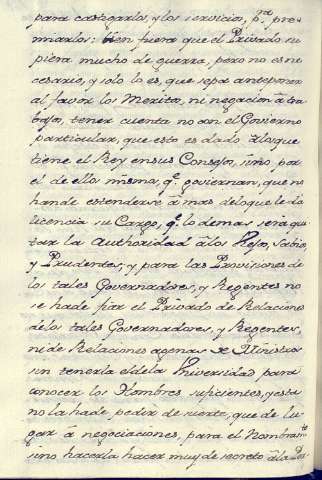 para castigarlos, y los servicios, p.ª pre
miarlos: bien fuera que el Privado su
piera mucho de guerra, pero no es ne
cesario, y solo lo es, que sepa anteponer
al favor los Meritos, ni negociacion â tra
bajos, tener cuenta no con el Govierno
particular, que esto es dado âlos que
tiene el Rey en sus Consejos, sino por
el de ellos mismos, q.e goviernan, que no
han de estenderse â mas delo que le dâ
licencia su Cargo, q.e lo demas seria qui
tar la authoridad âlos Reyes, Sabios,
y Prudentes, y para las Provisiones de
los tales Governadores, y Regentes no
se hade fiar el Privado de Relaciones
delos tales Governadores, y Regentes,
ni de Relaciones agenas de Ministros
sin tenerla el dela Universidad para
conocer los Hombres suficientes, y esta
no la hade pedir de suerte, que de lu
gar â negociaciones, para el Nombram.to
sino hacerla hacer muy de secreto âla